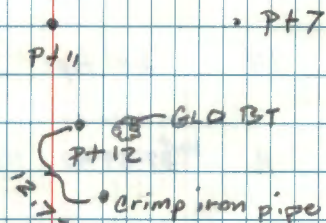 pt 7
pt 11
GLO BT
pt 12
crimp iron pipe